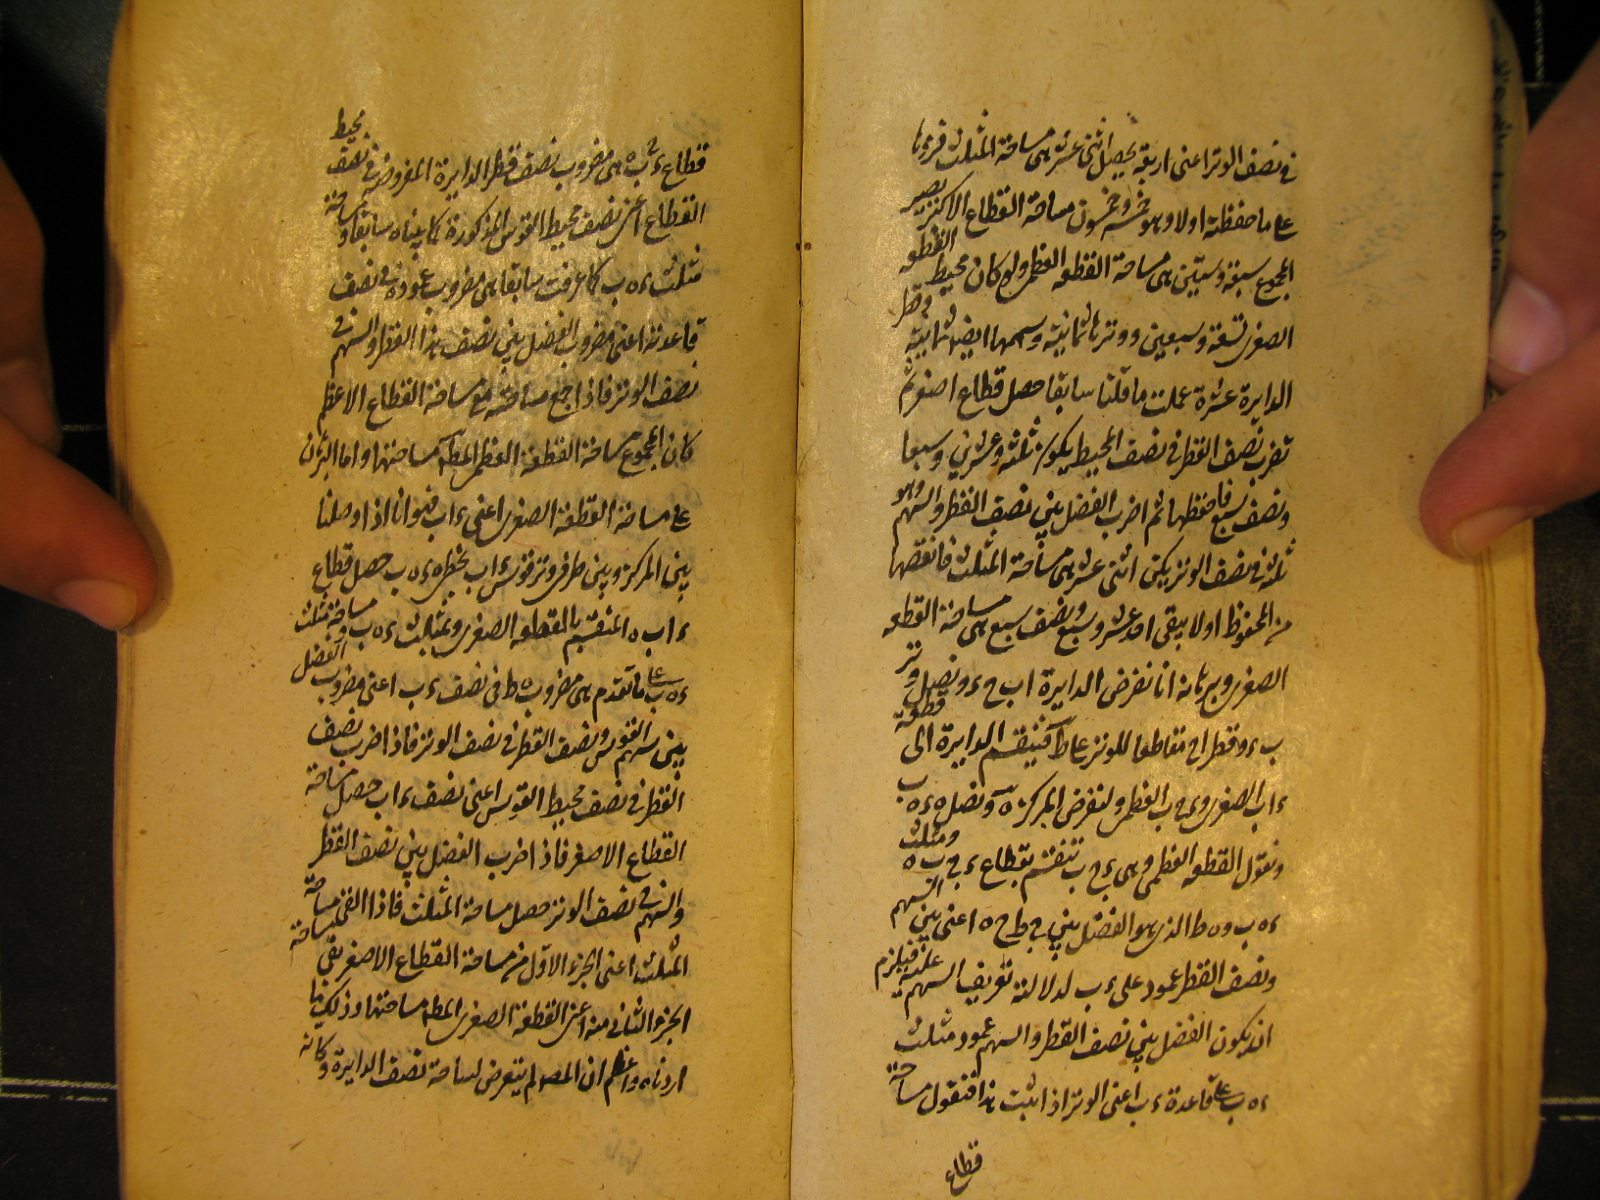 في نصف الوتر اعني اربعة يحصل اثنى عشر هي مساحة المثلث فزدها
على ما حفظته اولا وهو خمسة وخمسون مساحة القطاع الاكبر يصير
المجموع سبعة وستين هي مساحة القطعة العظمى ولو كان محيط القطعة
الصغرى تسعة وسبعين ووترها ثمانية وسهمها ايضا ثمانية وقطر
الدايرة عشرة عملت ما قلنا سابقا حصل قطاع اصغر ثم
تضرب نصف القطر في نصف المحيط يكون ثلثة وعشرين وسبعا
ونصف سبع فاحفظها ثم اضرب الفضل بين نصف القطر والسهم وهو
ثلثة في نصف الوتر يكن اثنى عشر هي مساحة المثلث فانقصها
من المحفوظ اولا يبقى احد عشر وسبع ونصف سبع هي مساحة القطعة
الصغرى وبرهانه انا نفرض الدايرة ا ب ج ء ونصل وتر
ب ء وقطر ا ج مقاطعا للوتر على ط فينقسم الدايرة الى قطعة
ء ا ب الصغرى و ء ج ب العظمى ولنفرض المركز ه ونصل ه ء ه ب
ونقول القطعة العظمى وهي ء ج ب تنقسم بقطاع ء ج ب ه ومثلث
ء ه ب و ه ط الذي هو الفضل بين ط ج ه اعني بين السهم
ونصف القطر عمود على ء ب لدلالة تعريف السهم عليه فيلزم
ان يكون الفضل بين نصف القطر والسهم عمود مثلث
ء ه ب على قاعدة ء ب اعني الوتر اذا ثبت هذا فنقول مساحة
قطاع
قطاع ء ج ب ه هي مضروب نصف قطر الدايرة المفروضة في نصف محيط
القطاع اعني نصف محيط القوس المذكورة كما بيناه سابقا ومساحة
مثلث ء ه ب كما عرفت سابقا هي مضروب عموده في نصف
قاعدته اعني مضروب الفضل بين نصف هذا القطر والسهم في
نصف الوتر فاذا جمع مساحته مع مساحة القطاع الاعظم
كان المجموع مساحة القطعة العظمى المط مساحتها واما البرهان
على مساحة القطعة الصغرى اعني ء ا ب فهو انا اذا وصلنا
بين المركز وبين طرفي وتر قوس ء ا ب بخطي ه ء ه ب حصل قطاع
ء ا ب ه المنقسم بالقطعة الصغرى وبمثلث ء ه ب ومساحة مثلث
ء ه ب على ما تقدم هي مضروب ه ط في نصف ء ب اعني مضروب الفضل
بين سهم القوس ونصف القطر في نصف الوتر فاذا ضرب نصف
القطر في نصف محيط القوس اعني نصف ء ا ب حصل مساحة
القطاع الاصغر فاذا ضرب الفضل بين نصف القطر
والسهم في نصف الوتر حصل مساحة المثلث فاذا القي مساحة
المثلث اعني الجزء الاول من مساحة القطاع الاصغر بقي مساحة
الجزء الثاني منه اعني القطعة الصغرى المط مساحتها وذلك ما
اردناه واعلم ان المصـ لم يتعرض لمساحة نصف الدايرة وكانه